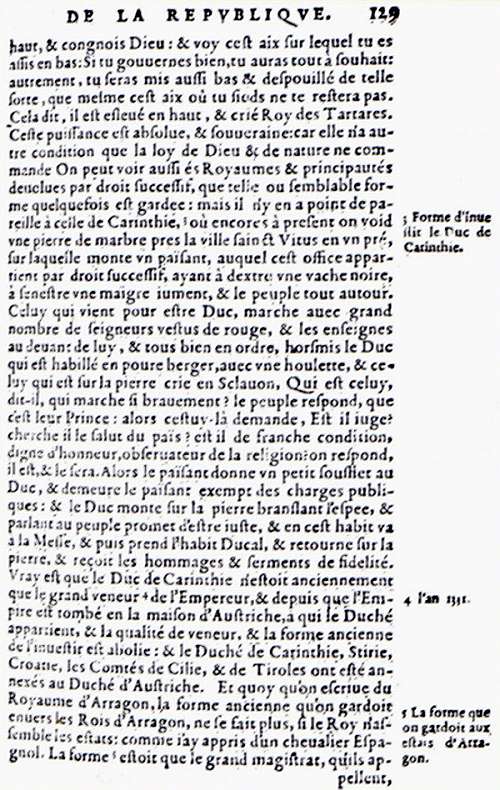 DE LA REPVBLIQVE. 129
haut, & congnois Dieu: & voy cest aix sur lequel tu es
assis en bas: Si tu gouuernes bien, tu auras tout à souhait:
autrement, tu seras mis aussi bas & despouillé de telle
sorte, que mesme cest aix où tu sieds ne te restera pas.
Cela dit, il est esleué en haut, & crié Roy des Tartares.
Ceste puissance est absoluë, & souueraine: car elle n'a au-
tre condition que la loy de Dieu & de nature ne com-
mande On peut voir aussi és Royaumes & principautés
deuolues par droit successif, que telle ou semblable for-
me quelquefois est gardee: mais il n'y en a point de pa-
reille à celle de Carinthie, 3 où encores à present on void
vne pierre de marbre pres la ville sainct Vitus en vn pré,
sur laquelle monte vn païsant, auquel cest office appar-
tient par droit successif, ayant à dextre vne vache noire,
à senestre vne maigre iument, & le peuple tout autour.
Celuy qui vient pour estre Duc, marche auec grand
nombre de seigneurs vestus de rouge, & les enseignes
au deuant de luy, & tous bien en ordre, horsmis le Duc
qui est habillé en poure berger, auec vne houlette, & ce-
luy qui est sur la pierre crie en Sclauon, Qui est celuy,
dit-il, qui marche si brauement? le peuple respond, que
c'est leur Prince: alors cestuy-là demande, Est il iuge?
cherche il le salut du païs? est il de franche condition,
digne d'honneur, obseruateur de la religion? on respond,
il est, & le sera. Alors le païsant donne vn petit soufflet au
Duc, & demeure le païsant exempt des charges publi-
ques: & le Duc monte sur la pierre branslant l'espee, &
parlant au peuple promet d'estre iuste, & en cest habit va
à la Messe, & puis prend l'habit Ducal, & retourne sur la
pierre, & reçoit les hommages & serments de fidelité.
Vray est que le Duc de Carinthie n'estoit anciennement
que le grand veneur 4 de l'Empereur, & depuis que l'Em-
pire est tombé en la maison d'Austriche, à qui le Duché
appartient, & la qualité de veneur, & la forme ancienne
de l'inuestir est abolie: & le Duché de Carinthie, Stirie,
Croatie, les Comtés de Cilie, & de Tiroles ont esté an-
nexés au Duché d'Austriche. Et quoy qu'on escriue du
Royaume d'Arragon, la forme ancienne qu'on gardoit
enuers les Rois d'Arragon, ne se fait plus, si le Roy n'as-
semble les estats: comme i'ay appris d'un cheualier Espa-
gnol. La forme 5 estoit que le grand magistrat, qu'ils ap-
pellent,
3 Forme d'inue
stir le Duc de
Carinthie.
4 l'an 1331.
5 La forme que
on gardoit aux
estats d'Arra-
gon.